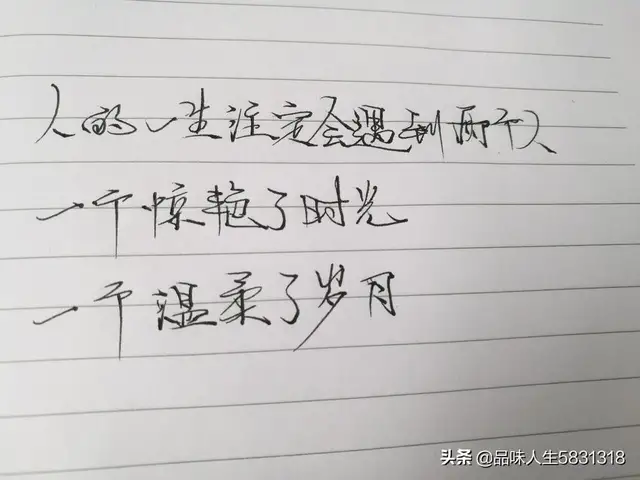 人的一生注定会遇到两个人
一个惊艳了时光
一个温柔了岁月
头条 @品味人生5831318